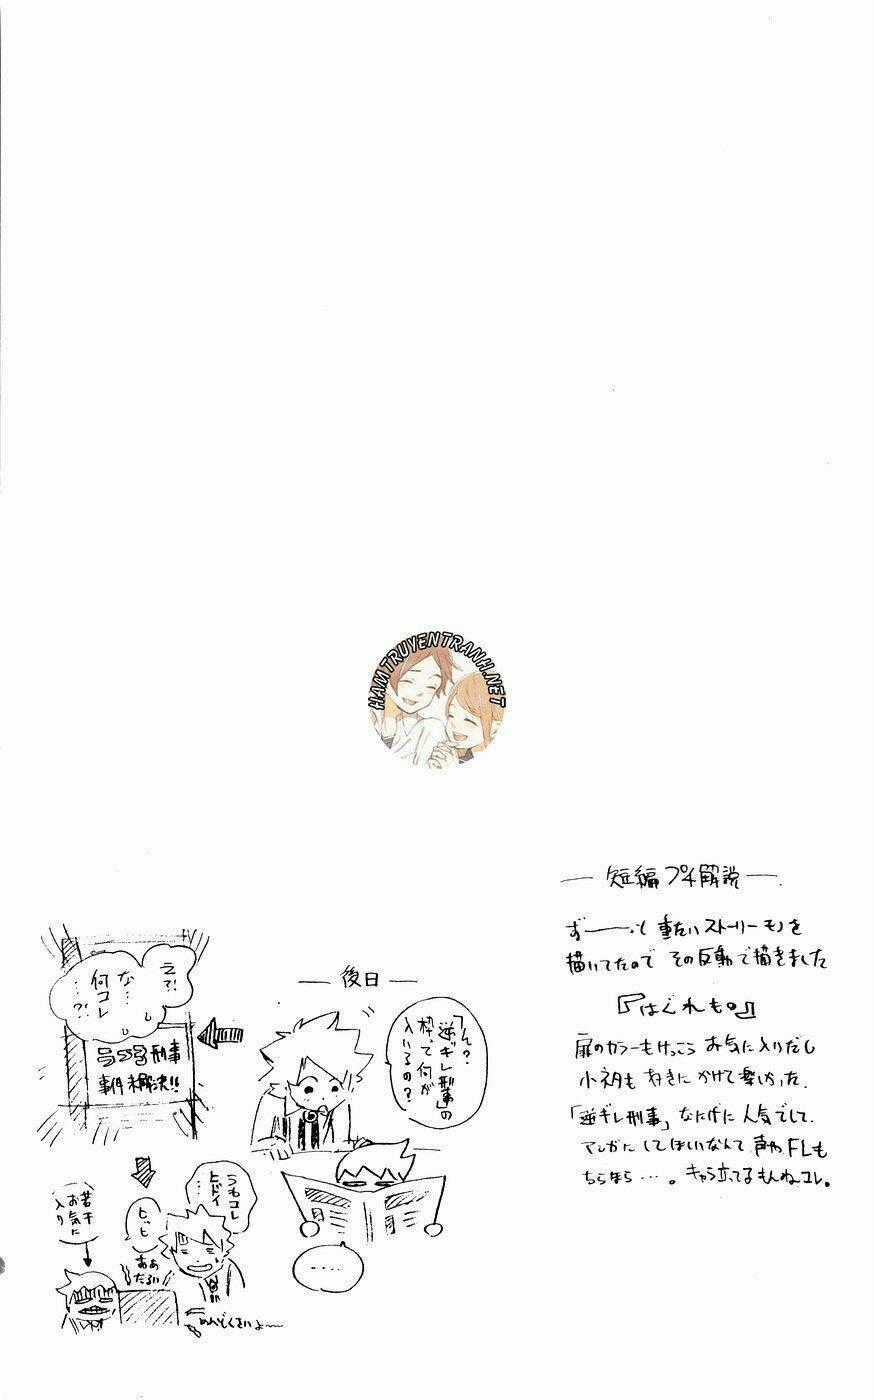 HAMTRUYENTRANH.NET
― 短編プチ解説 ―
ず――っと 重たいストーリーモノを
描いてたので その反動で描きました
『はぐれも。』
扉のカラーもけっこう お気に入りだし
小ネタも 好きに かけて楽しかった.
「逆ギレ刑事」なにげに人気でして.
マンガにしてほしいなんて 声やFLも
ちらほら …。キャラ立ってるもんねコレ。
― 後日 ―
「ん?
逆ギレ刑事」の
枠って何が
入いるの?
・・・・・
えっ!
な…
何コレ
…?!
刑事
事件未解決!!
うわコレ
ヒドイ
…
ヒッヒ
ああ
だるい
若干
お気に
入り
めんどくさいよ～